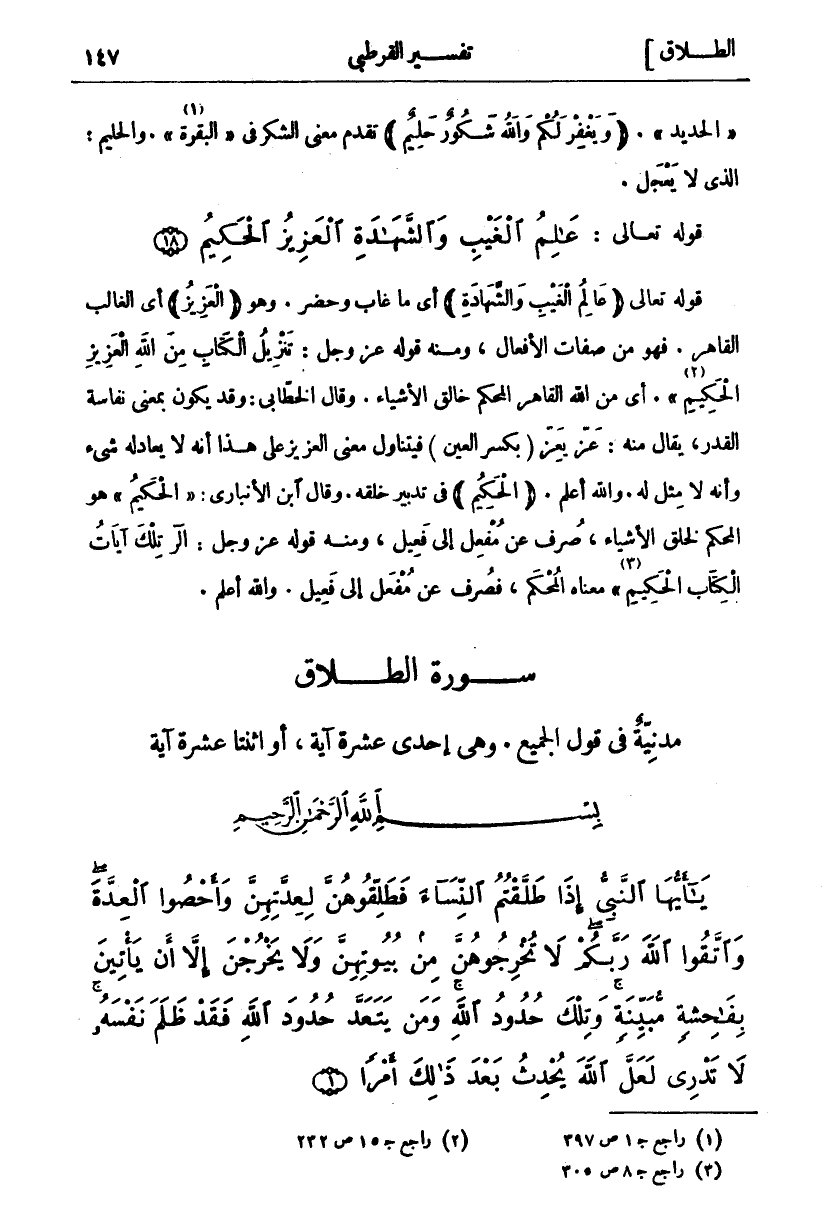 الطـــلاق ]
تفســـير القرطبي
١٤٧
« الحديد » . ﴿ وَيَغْفِرْ لَكُمْ وَاللهُ شَكُورٌ حَلِيمٌ ﴾ تقدم معنى الشكر فى « البقرة (١) » . والحليم :
الذى لا يَعْجَل .
قوله تعـالى : عَـٰلِمُ ٱلْغَيْبِ وَٱلشَّهَـٰدَةِ ٱلْعَزِيزُ ٱلْحَكِيمُ ۝١٨
قوله تعالى ﴿ عَالِمُ الْغَيْبِ وَالشَّهَادَةِ ﴾ أى ما غاب وحضر . وهو ﴿ الْعَزِيزُ ﴾ أى الغالب
القاهر . فهو من صفات الأفعال ، ومـنه قوله عز وجل : تَنْزِيلُ الْكِتَابِ مِنَ اللهِ الْعَزِيزِ
الْحَكِيمِ (٢) » . أى من الله القاهر المحكم خالق الأشياء . وقال الخطّابى : وقد يكون بمعنى نفاسة
القدر ، يقال منه : عَزّ يَعَزّ ( بكسر العين ) فيتناول معنى العزيز على هـذا أنه لا يعادله شىء
وأنه لا مِثل له . والله أعلم . ﴿ الْحَكِيمُ ﴾ فى تدبير خلقه . وقال ٱبن الأنبارى : « الحَكيمُ » هو
المحكم لخلق الأشياء ، صُرف عن مُفْعِل إلى فَعِيل ، ومنـه قوله عز وجل : الٓر تِلْكَ آيَاتُ
الْكِتَابِ الْحَكِيمِ (٣) » معناه المُحْكَم ، فصُرف عن مُفْعَل إلى فَعِيل . والله أعلم .
ســـورة الطـــلاق
مدنيّةٌ فى قول الجميع . وهى إحدى عشرة آية ، أو اثنتا عشرة آية
بِسْـــمِ ٱللَّهِ ٱلرَّحْمَـٰنِ ٱلرَّحِيـمِ
يَـٰٓأَيُّهَا ٱلنَّبِىُّ إِذَا طَلَّقْتُمُ ٱلنِّسَآءَ فَطَلِّقُوهُنَّ لِعِدَّتِهِنَّ وَأَحْصُوا ٱلْعِدَّةَ ۖ
وَٱتَّقُوا ٱللَّهَ رَبَّكُمْ ۖ لَا تُخْرِجُوهُنَّ مِنۢ بُيُوتِهِنَّ وَلَا يَخْرُجْنَ إِلَّآ أَن يَأْتِينَ
بِفَـٰحِشَةٍ مُّبَيِّنَةٍ ۚ وَتِلْكَ حُدُودُ ٱللَّهِ ۚ وَمَن يَتَعَدَّ حُدُودَ ٱللَّهِ فَقَدْ ظَلَمَ نَفْسَهُۥ ۚ
لَا تَدْرِى لَعَلَّ ٱللَّهَ يُحْدِثُ بَعْدَ ذَٰلِكَ أَمْرًا ۝١
(١) راجع جـ ١ ص ٣٩٧
(٢) راجع جـ ١٥ ص ٢٣٢
(٣) راجع جـ ٨ ص ٣٠٥